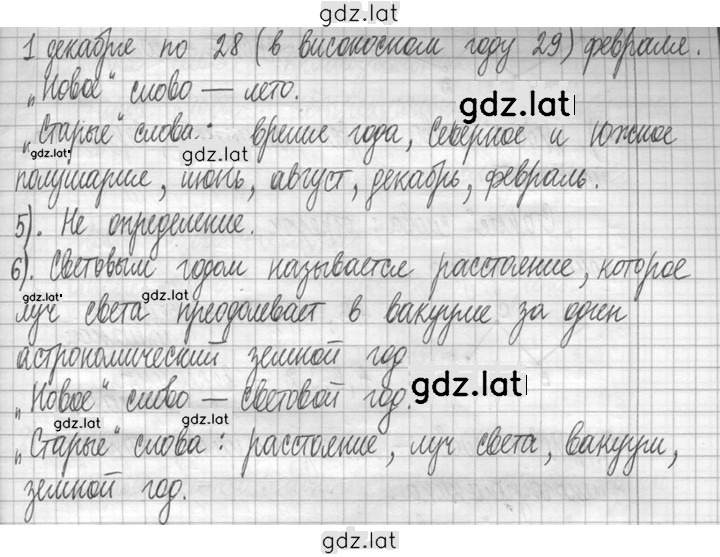 gdz.lat
1 декабря по 28 (в високосном году 29) февраля.
„Новое“ слово — лето.
gdz.lat
„Старые“ слова: время года, Северное и Южное
gdz.lat gdz.lat
полушарие, июнь, август, декабрь, февраль.
5). Не определение.
6). Световым годом называется расстояние, которое
gdz.lat gdz.lat
луч света преодолевает в вакууме за один
астрономический земной год
„Новое“ слово — световой год.
gdz.lat
gdz.lat gdz.lat
„Старые“ слова: расстояние, луч света, вакуум,
земной год.
gdz.lat